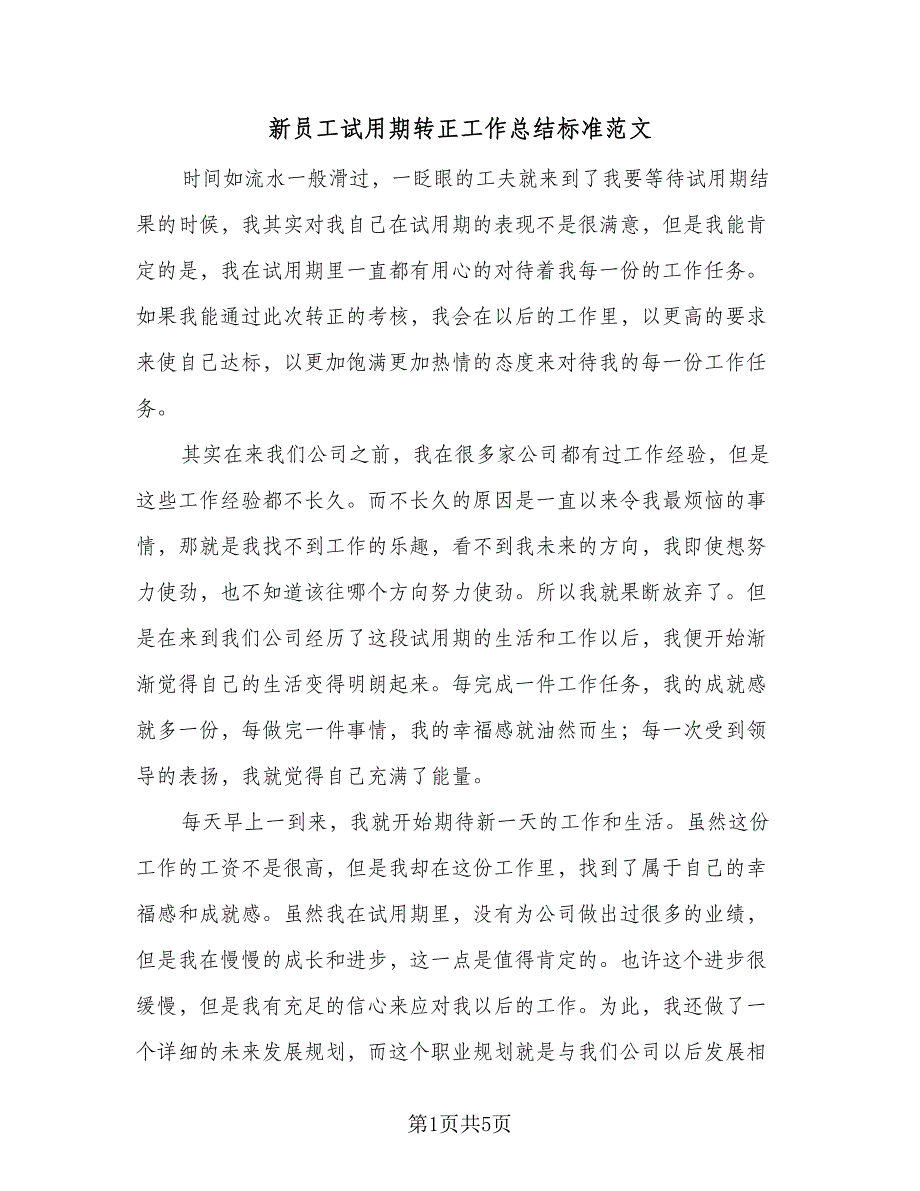 新员工试用期转正工作总结标准范文
时间如流水一般滑过，一眨眼的工夫就来到了我要等待试用期结
果的时候，我其实对我自己在试用期的表现不是很满意，但是我能肯
定的是，我在试用期里一直都有用心的对待着我每一份的工作任务。
如果我能通过此次转正的考核，我会在以后的工作里，以更高的要求
来使自己达标，以更加饱满更加热情的态度来对待我的每一份工作任
务。
其实在来我们公司之前，我在很多家公司都有过工作经验，但是
这些工作经验都不长久。而不长久的原因是一直以来令我最烦恼的事
情，那就是我找不到工作的乐趣，看不到我未来的方向，我即使想努
力使劲，也不知道该往哪个方向努力使劲。所以我就果断放弃了。但
是在来到我们公司经历了这段试用期的生活和工作以后，我便开始渐
渐觉得自己的生活变得明朗起来。每完成一件工作任务，我的成就感
就多一份，每做完一件事情，我的幸福感就油然而生；每一次受到领
导的表扬，我就觉得自己充满了能量。
每天早上一到来，我就开始期待新一天的工作和生活。虽然这份
工作的工资不是很高，但是我却在这份工作里，找到了属于自己的幸
福感和成就感。虽然我在试用期里，没有为公司做出过很多的业绩，
但是我在慢慢的成长和进步，这一点是值得肯定的。也许这个进步很
缓慢，但是我有充足的信心来应对我以后的工作。为此，我还做了一
个详细的未来发展规划，而这个职业规划就是与我们公司以后发展相
第1页共5页